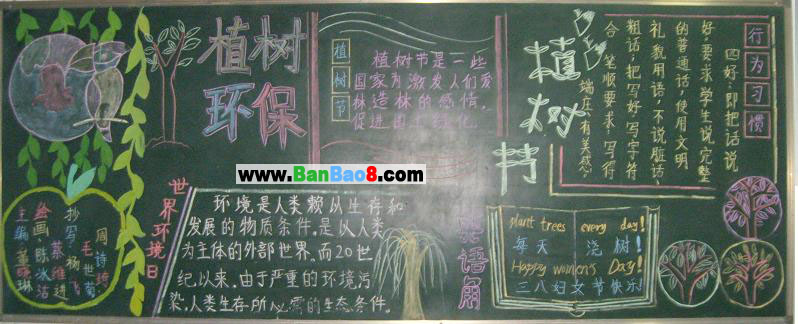 植树
环保
植树节
植树节是一些
国家为激发人们爱
林造林的感情，
促进国土绿化，
植树节
行为习惯
四好：即把话说
好，要求学生说完整
的普通话，使用文明
礼貌用语，不说脏话、
粗话；把写好，写字符
合笔顺要求，写得
端庄、有美感。
www.BanBao8.com
世界环境日
环境是人类赖以生存和
发展的物质条件。是以人类
为主体的外部世界。而20世
纪以来，由于严重的环境污
染，人类生存所必需的生态条件。
英语角
plant trees every day!
每天浇树！
Happy women's Day!
三八妇女节快乐！
主编：
绘画：陈冰洁
抄写：杨飞
蔡维进
毛世菊
周诗琦